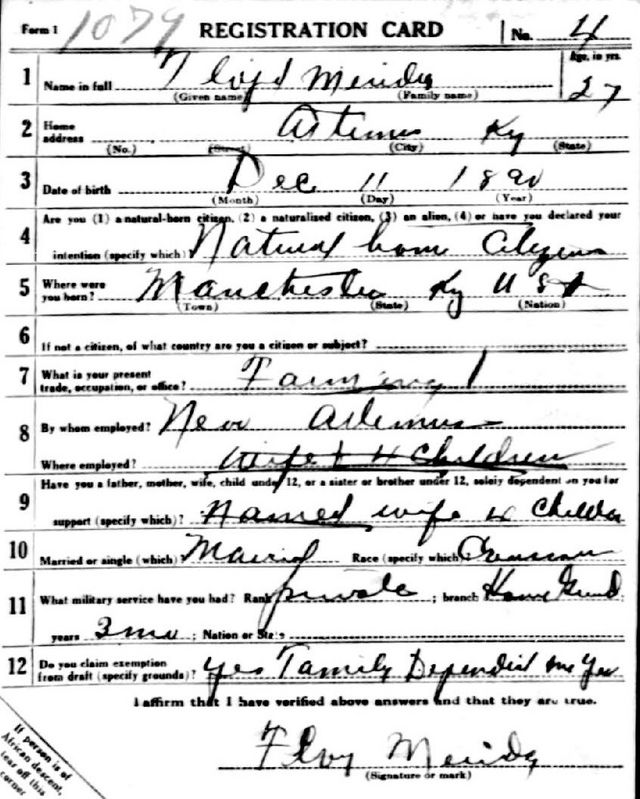 Form 1 1079 REGISTRATION CARD No. 4
1 Name in full Floyd Age, in yrs.
(Given name) (Family name) 27
2 Home address Artemus Ky
(No.) (Street) (City) (State)
3 Date of birth Dec 11 1890
(Month) (Day) (Year)
Are you (1) a natural-born citizen, (2) a naturalized citizen, (3) an alien, (4) or have you declared your
4 intention (specify which)? Natural born Citizen
5 Where were you born? Manchester Ky U S A
(Town) (State) (Nation)
6 If not a citizen, of what country are you a citizen or subject?
7 What is your present trade, occupation, or office? Farming 1
8 By whom employed? Near Artemus
Where employed? wife & 4 children
Have you a father, mother, wife, child under 12, or a sister or brother under 12, solely dependent on you for
9 support (specify which)? Named wife 4 Children
10 Married or single (which) Married Race (specify which)
11 What military service have you had? Rank private ; branch Home Guard
years 3 mo ; Nation or State
12 Do you claim exemption from draft (specify grounds)? Yes Family
I affirm that I have verified above answers and that they are true.
(Signature or mark)
If person is of
African descent,
tear off this
corner